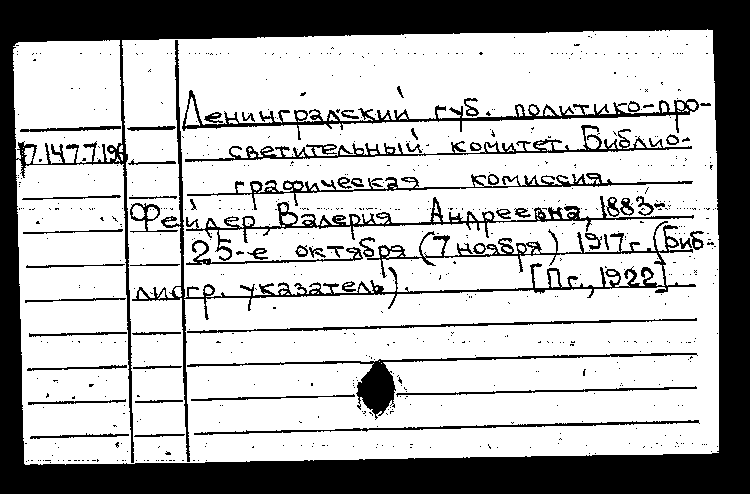 Ленинградский губ. политико-про-
17.147.7.196.
светительный комитет. Библио-
графическая комиссия.
Фейдер, Валерия Андреевна, 1883-
25-е октября (7 ноября) 1917 г. (Биб-
лиогр. указатель). [Пг., 1922].